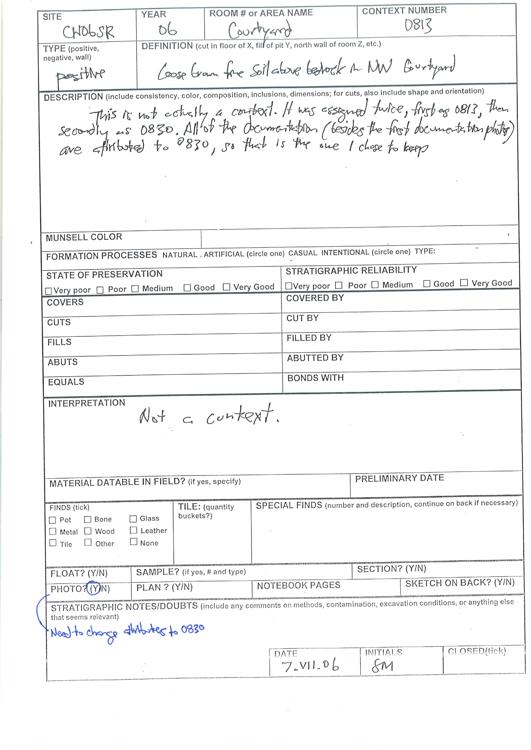 SITE YEAR ROOM # or AREA NAME CONTEXT NUMBER
CH06SR 06 Courtyard 0813
TYPE (positive, negative, wall) DEFINITION (cut in floor of X, fill of pit Y, north wall of room Z, etc.)
positive Loose Gram fine Soil above bedrock in NW Courtyard
DESCRIPTION (include consistency, color, composition, inclusions, dimensions; for cuts, also include shape and orientation)
This is not actually a context. It was assigned twice, first as 0813, then
secondly as 0830. All of the documentation (besides the first documentation photos)
are attributed to 0830, so that is the one I chose to keep
MUNSELL COLOR
FORMATION PROCESSES NATURAL . ARTIFICIAL (circle one) CASUAL INTENTIONAL (circle one) TYPE:
STATE OF PRESERVATION STRATIGRAPHIC RELIABILITY
Very poor Poor Medium Good Very Good Very poor Poor Medium Good Very Good
COVERS COVERED BY
CUTS CUT BY
FILLS FILLED BY
ABUTS ABUTTED BY
EQUALS BONDS WITH
INTERPRETATION
Not a context.
MATERIAL DATABLE IN FIELD? (if yes, specify) PRELIMINARY DATE
FINDS (tick) TILE: (quantity buckets?) SPECIAL FINDS (number and description, continue on back if necessary)
Pot Bone Glass
Metal Wood Leather
Tile Other None
FLOAT? (Y/N) SAMPLE? (if yes, # and type) SECTION? (Y/N)
PHOTO? (Y/N) PLAN ? (Y/N) NOTEBOOK PAGES SKETCH ON BACK? (Y/N)
STRATIGRAPHIC NOTES/DOUBTS (include any comments on methods, contamination, excavation conditions, or anything else
that seems relevant)
Need to change attributes to 0830
DATE INITIALS CLOSED(tick)
7.VII.06 SM